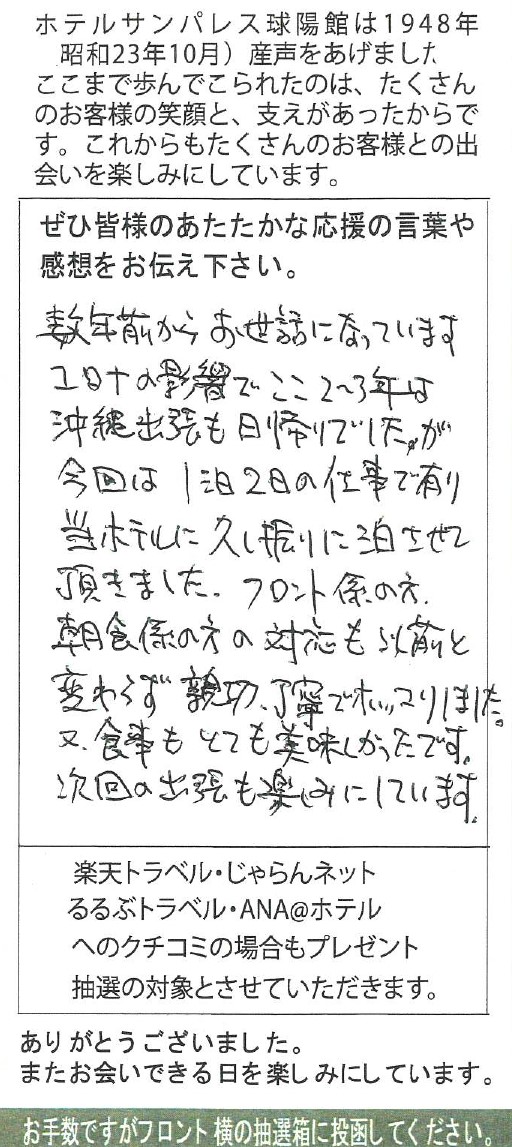 ホテルサンパレス球陽館は1948年
昭和23年10月）産声をあげました
ここまで歩んでこられたのは、たくさん
のお客様の笑顔と、支えがあったからで
す。これからもたくさんのお客様との出
会いを楽しみにしています。
ぜひ皆様のあたたかな応援の言葉や
感想をお伝え下さい。
数年前からお世話になっています
コロナの影響でここ2～3年は
沖縄出張も日帰りでした。が
今回は1泊2日の仕事で有り
当ホテルに久し振りに泊させて
頂きました。フロント係の方、
朝食係の方の対応も以前と
変わらず親切、丁寧でホッコリしました。
又、食事もとても美味しかったです。
次回の出張も楽しみにしています。
楽天トラベル・じゃらんネット
るるぶトラベル・ANA@ホテル
へのクチコミの場合もプレゼント
抽選の対象とさせていただきます。
ありがとうございました。
またお会いできる日を楽しみにしています。
お手数ですがフロント横の抽選箱に投函してください。